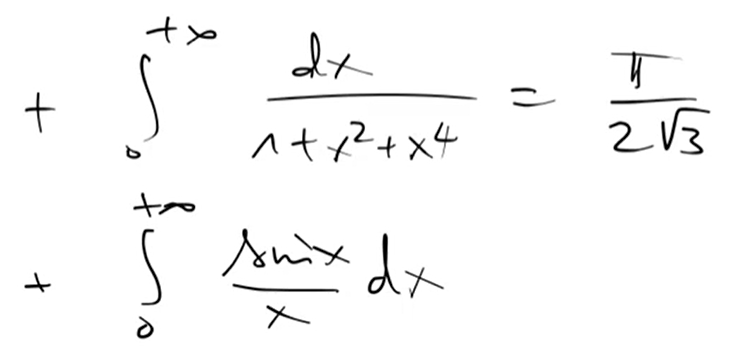 + ∫₀^{+∞} dx/(1+x²+x⁴) = π/(2√3)
+ ∫₀^{+∞} (sin x)/x dx